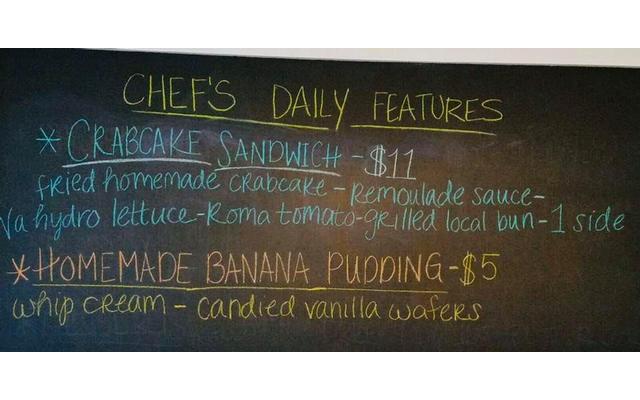 CHEF'S DAILY FEATURES
* CRABCAKE SANDWICH - $11
fried homemade crabcake - Remoulade sauce -
Va hydro lettuce - Roma tomato - grilled local bun - 1 side
* HOMEMADE BANANA PUDDING - $5
whip cream - candied vanilla wafers